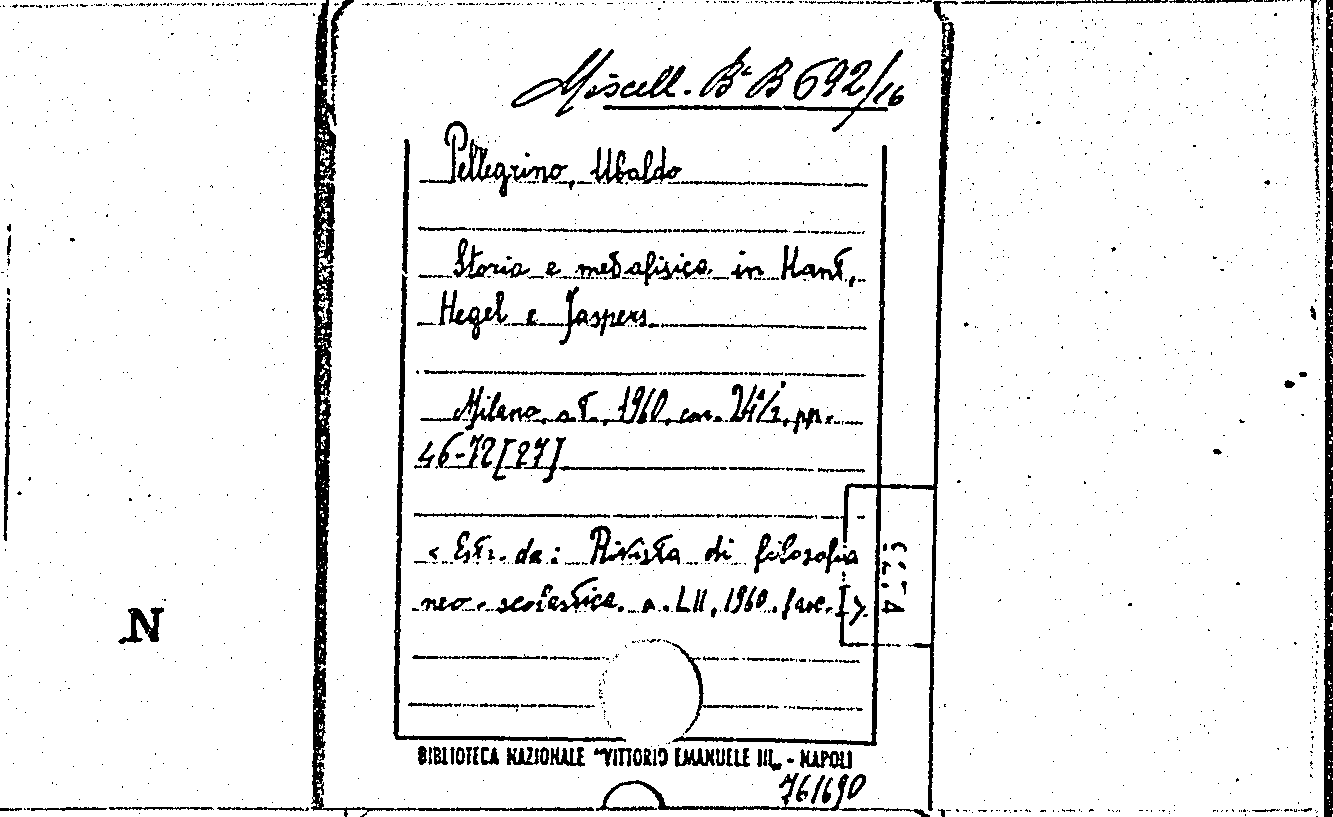 Miscell. Bᵃ B 692/16
Pellegrino, Ubaldo
Storia e metafisica in Kant,
Hegel e Jaspers
Milano, s.t., 1960, cm. 24½, pp.
46-72 [27]
< Estr. da: Rivista di filosofia
neo-scolastica. a. LII, 1960. fasc. I >
N
BIBLIOTECA NAZIONALE "VITTORIO EMANUELE III„ - NAPOLI
761690